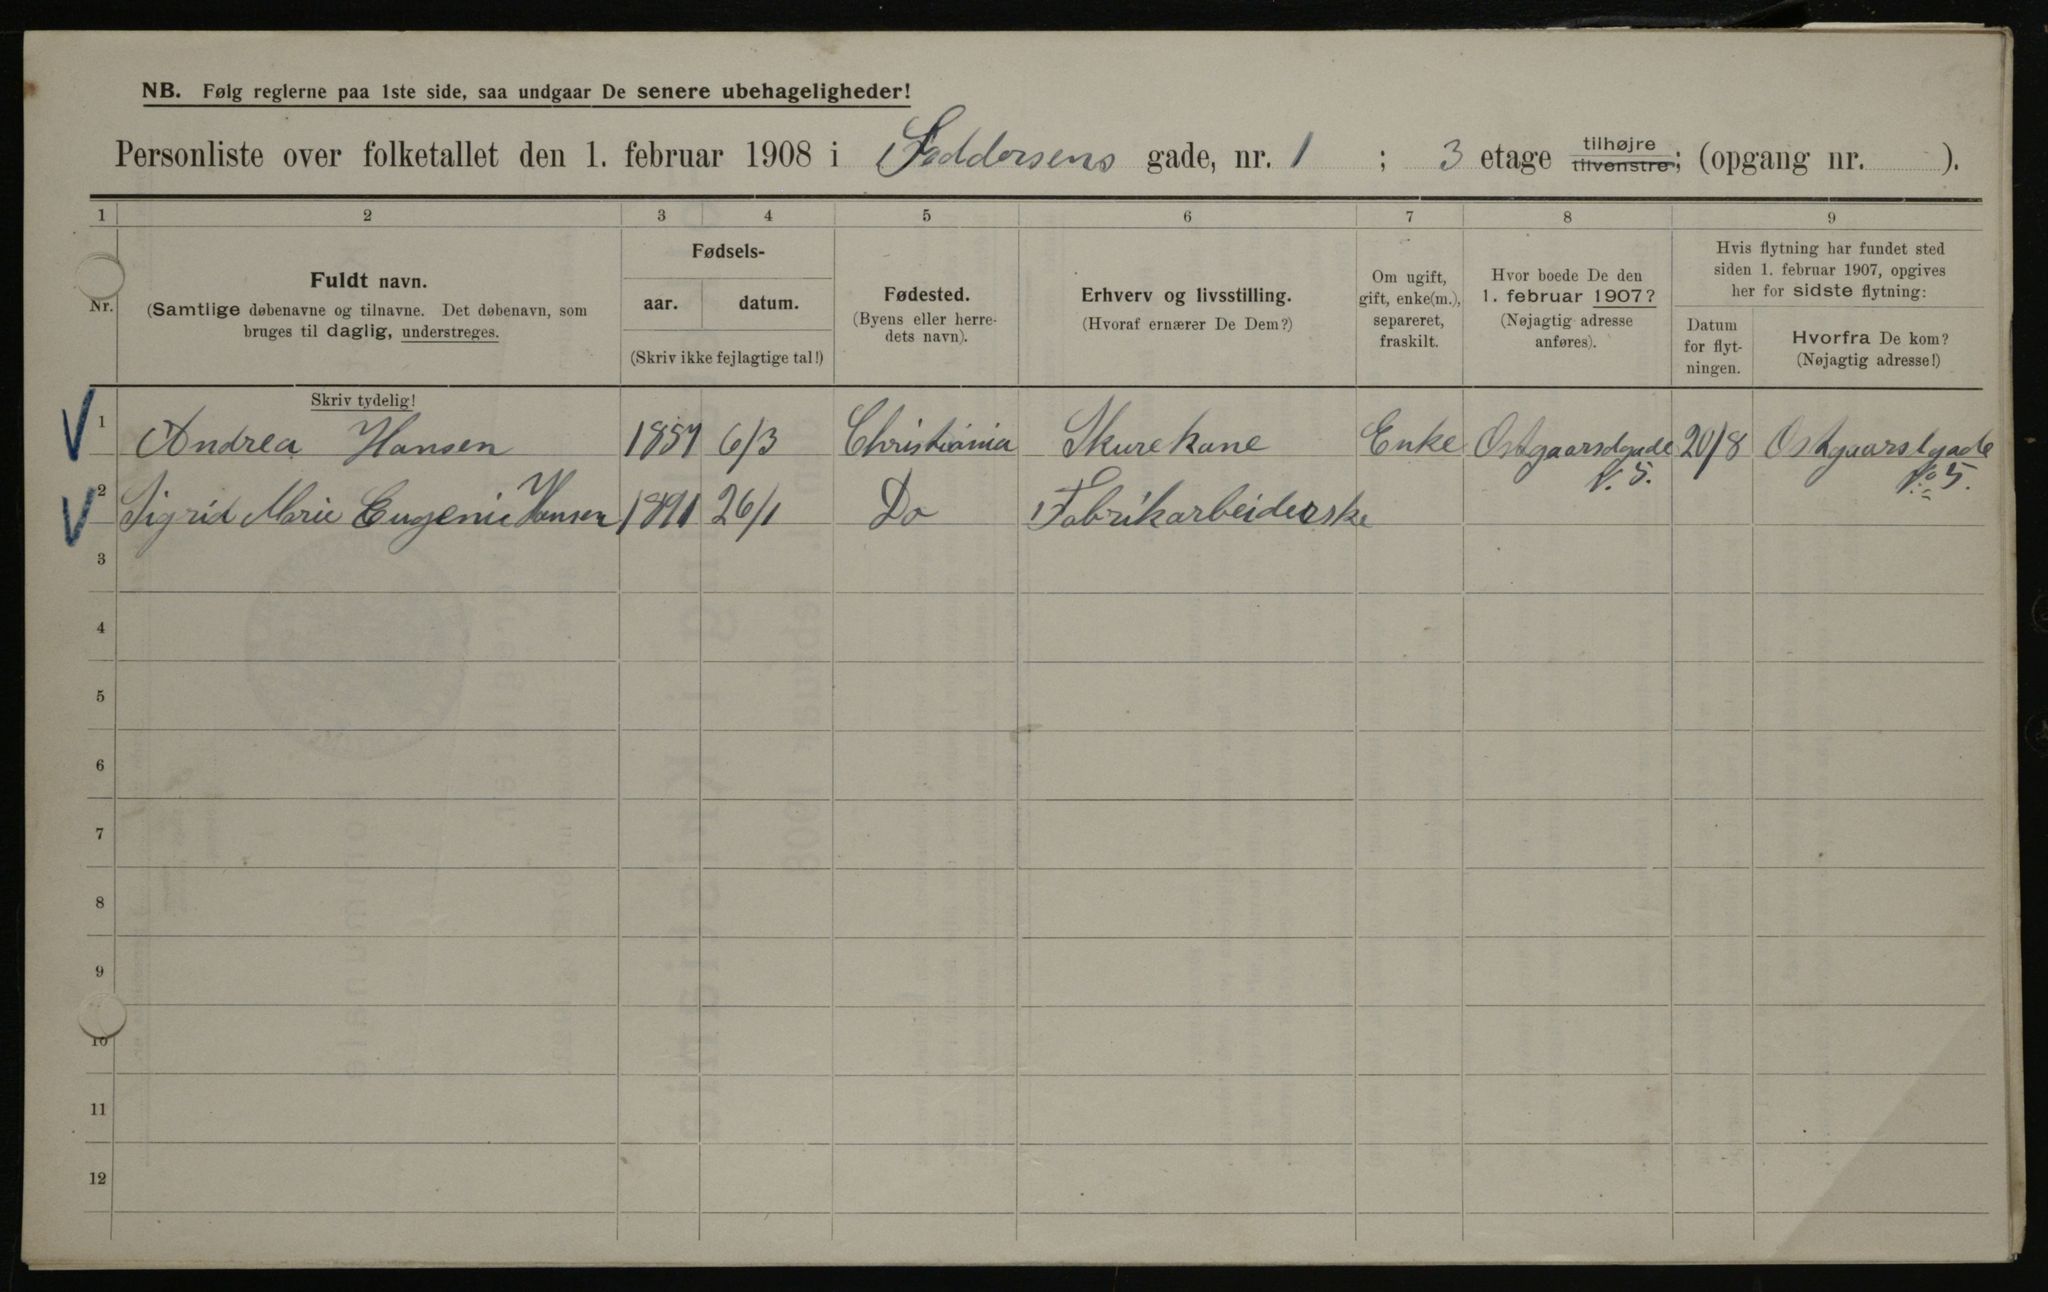 NB. Følg reglerne paa 1ste side, saa undgaar De senere ubehageligheder!
Personliste over folketallet den 1. februar 1908 i Seddorsens gade, nr. 1 ; 3 etage tilhøjre tilvenstre; (opgang nr. ).
1 2 3 4 5 6 7 8 9
Nr.
Fuldt navn.
(Samtlige døbenavne og tilnavne. Det døbenavn, som
bruges til daglig, understreges.
Fødsels-
aar. datum.
(Skriv ikke fejlagtige tal!)
Fødested.
(Byens eller herre-
dets navn).
Erhverv og livsstilling.
(Hvoraf ernærer De Dem?)
Om ugift,
gift, enke(m.),
separeret,
fraskilt.
Hvor boede De den
1. februar 1907?
(Nøjagtig adresse
anføres).
Hvis flytning har fundet sted
siden 1. februar 1907, opgives
her for sidste flytning:
Datum
for flyt-
ningen.
Hvorfra De kom?
(Nøjagtig adresse!)
Skriv tydelig!
1 Andrea Hansen 1857 6/3 Christiania Skurekone Enke Ostgaardsgade 20/8 Ostgaardsgade
N. 5. No 5.
2 Sigrid Marie Eugenie Hansen 1891 26/1 Do Fabrikarbeiderske
3
4
5
6
7
8
9
10
11
12